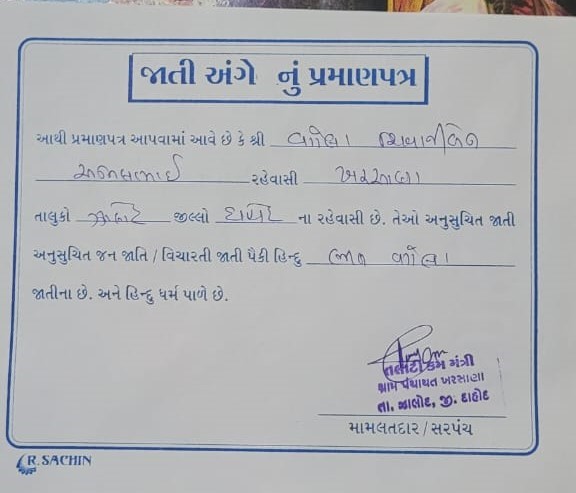 જાતી અંગે નું પ્રમાણપત્ર
આથી પ્રમાણપત્ર આપવામાં આવે છે કે શ્રી
રહેવાસી ખરસાણા
તાલુકો ઝાલોદ જીલ્લો દાહોદ ના રહેવાસી છે. તેઓ અનુસુચિત જાતી
અનુસુચિત જન જાતિ / વિચારતી જાતી પૈકી હિન્દુ
જાતીના છે. અને હિન્દુ ધર્મ પાળે છે.
તલાટી કમ મંત્રી
ગ્રામ પંચાયત ખરસાણા
તા. ઝાલોદ, જી. દાહોદ
મામલતદાર / સરપંચ
R. SACHIN